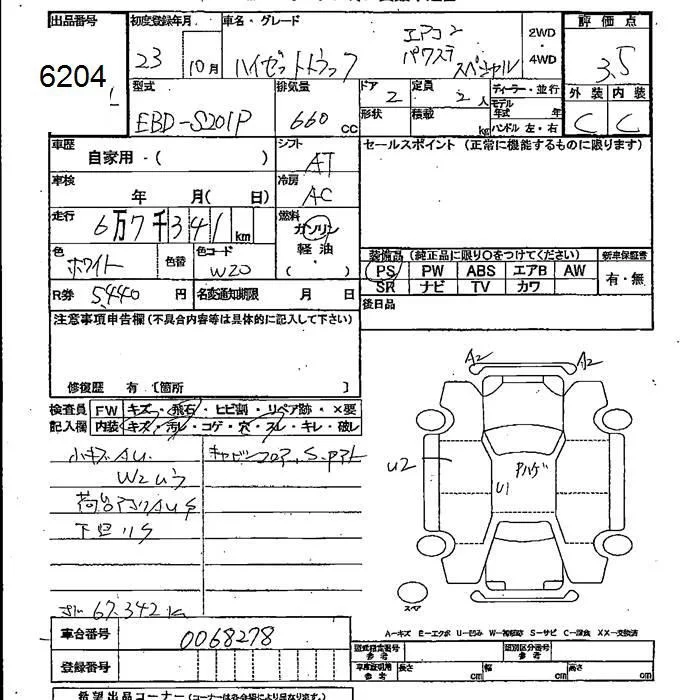 出品番号 初度登録年月 車名・グレード 評価点
6204 23 10月 ハイゼットトラック エアコン パワステ スペシャル 2WD ・ 4WD 3.5
外装 内装
C C
型式 排気量 ドア 定員 ディーラー・並行
EBD-S201P 660 cc 2 2人 モデル年式 年
形状 積載 kg ハンドル 左・右
車歴 シフト セールスポイント (正常に機能するものに限ります)
自家用・( ) AT
車検 冷房
年 月( 日) AC
走行 燃料
6万7千341 km ガソリン 軽油 ・ ( )
色 色替 色コード 装備品 (純正品に限り○をつけてください) 新車保証書
ホワイト W20 PS PW ABS エアB AW 有・無
SR ナビ TV カワ
R券 5,440 円 名変通知期限 月 日 後日品
注意事項申告欄 (不具合内容等は具体的に記入して下さい)
修復歴 有 〔箇所 〕
検査員 FW キズ・飛石・ヒビ割・リペア跡・×要
記入欄 内装 キズ・汚レ・コゲ・穴・スレ・キレ・破レ
小キズAU. キャビンフロア,S.
W2
下廻りS
67,342
A2 A2
U2 U1
スペア
A-キズ E-エクボ U-凹み W-補修跡 S-サビ C-腐食 XX-交換済
車台番号 0068278 型式指定番号 参考 類別区分番号 参考
登録番号 車庫証明用 参考 長さ cm 幅 cm 高さ cm
希望出品コーナー (コーナーは各会場により異なります。)